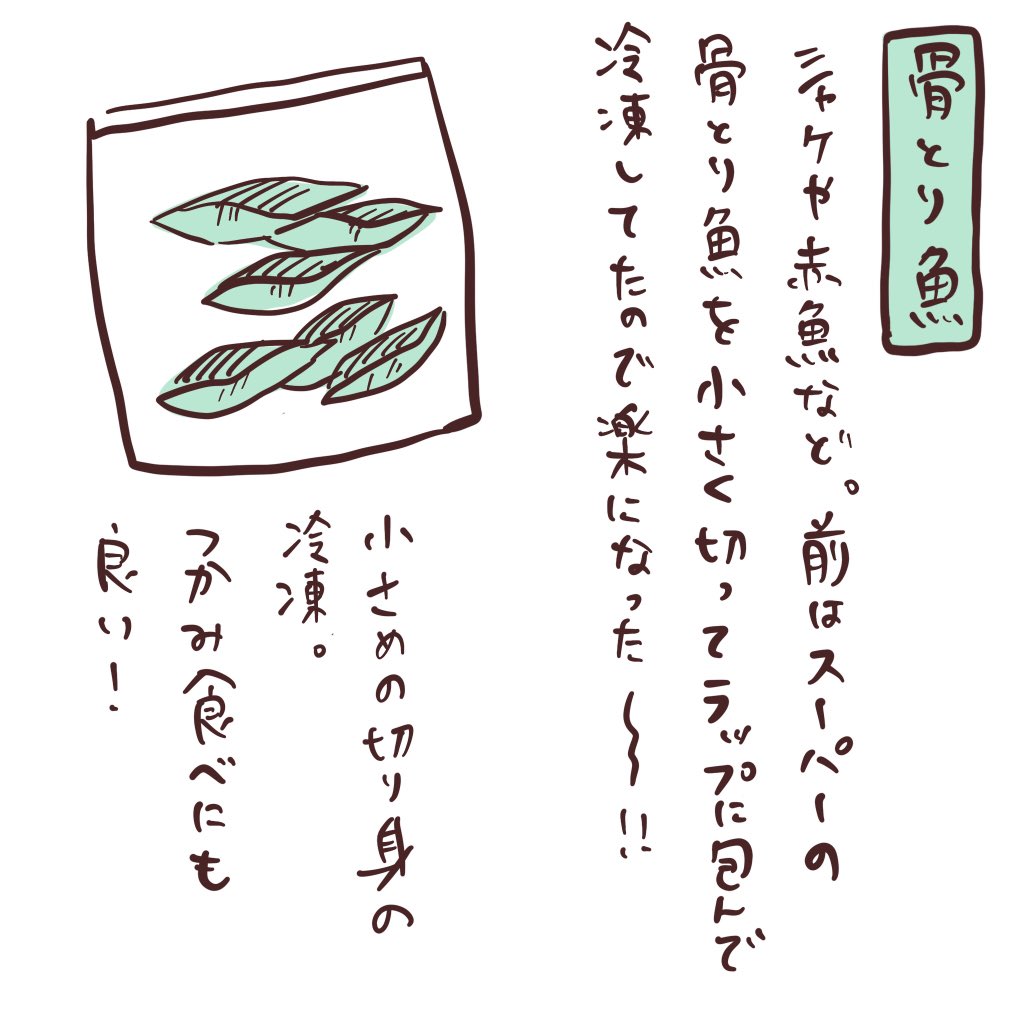 骨とり魚
シャケや赤魚など。前はスーパーの
骨とり魚を小さく切ってラップに包んで
冷凍してたので楽になった〜!!
小さめの切り身の
冷凍。
つかみ食べにも
良い!